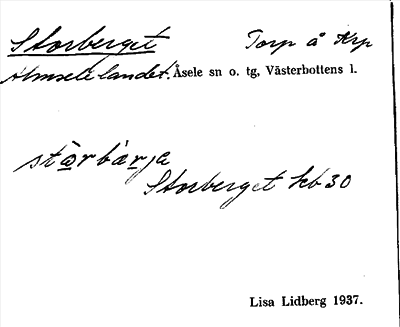 Storberget Torp å Krp
Almsele landet. Åsele sn o. tg, Västerbottens l.
stω̲rbär̲ja
Storberget kb 30
Lisa Lidberg 1937.